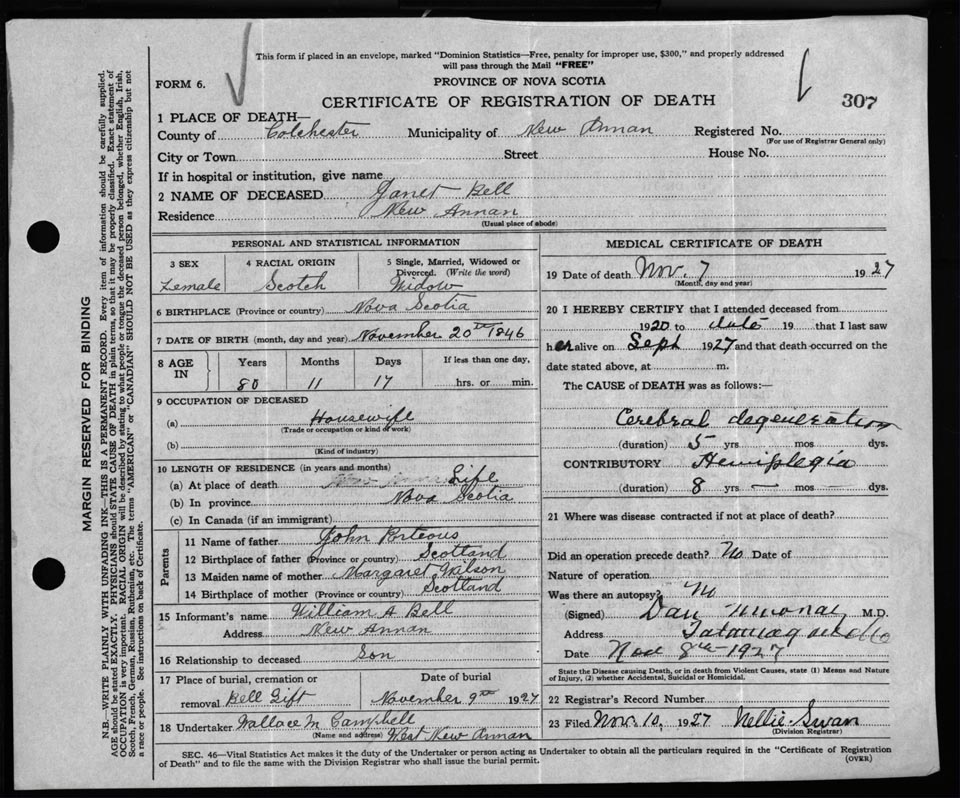 This form if placed in an envelope, marked "Dominion Statistics—Free, penalty for improper use, $300," and properly addressed
will pass through the Mail "FREE"
FORM 6.
PROVINCE OF NOVA SCOTIA
CERTIFICATE OF REGISTRATION OF DEATH
307
1 PLACE OF DEATH—
County of Colchester Municipality of New Annan Registered No.
(For use of Registrar General only)
City or Town Street House No.
If in hospital or institution, give name
2 NAME OF DECEASED Janet Bell
Residence New Annan
(Usual place of abode)
PERSONAL AND STATISTICAL INFORMATION
3 SEX 4 RACIAL ORIGIN 5 Single, Married, Widowed or
Divorced. (Write the word)
Female Scotch Widow
6 BIRTHPLACE (Province or country) Nova Scotia
7 DATE OF BIRTH (month, day and year) November 20th 1846
8 AGE IN Years Months Days If less than one day,
80 11 17 hrs. or min.
9 OCCUPATION OF DECEASED
(a) Housewife
(Trade or occupation or kind of work)
(b)
(Kind of industry)
10 LENGTH OF RESIDENCE (in years and months)
(a) At place of death Life
(b) In province Nova Scotia
(c) In Canada (if an immigrant)
Parents
11 Name of father John Porteous
12 Birthplace of father (Province or country) Scotland
13 Maiden name of mother Margaret Wilson
14 Birthplace of mother (Province or country) Scotland
15 Informant's name William A Bell
Address New Annan
16 Relationship to deceased Son
17 Place of burial, cremation or Date of burial
removal Bell Gift November 9th 1927
18 Undertaker Wallace M Campbell,
(Name and address) West New Annan
MEDICAL CERTIFICATE OF DEATH
19 Date of death Nov. 7 1927
(Month, day and year)
20 I HEREBY CERTIFY that I attended deceased from
1920 to date 19 that I last saw
her alive on Sept 1927 and that death occurred on the
date stated above, at m.
The CAUSE of DEATH was as follows:—
Cerebral degeneration
(duration) 5 yrs. mos dys.
CONTRIBUTORY Hemiplegia
(duration) 8 yrs — mos — dys.
21 Where was disease contracted if not at place of death?
Did an operation precede death? No Date of
Nature of operation
Was there an autopsy? No
(Signed) Dan M.D.
Address Tatamagouche
Date Nov 8th 1927
State the Disease causing Death, or in death from Violent Causes, state (1) Means and Nature
of Injury, (2) whether Accidental, Suicidal or Homicidal.
22 Registrar's Record Number
23 Filed Nov. 10, 1927 Nellie Swan
(Division Registrar)
SEC. 46—Vital Statistics Act makes it the duty of the Undertaker or person acting as Undertaker to obtain all the particulars required in the "Certificate of Registration
of Death" and to file the same with the Division Registrar who shall issue the burial permit.
(OVER)
MARGIN RESERVED FOR BINDING
N.B.—WRITE PLAINLY WITH UNFADING INK—THIS IS A PERMANENT RECORD. Every item of information should be carefully supplied.
AGE should be stated EXACTLY. PHYSICIANS should STATE CAUSE OF DEATH in plain terms, so that it may be properly classified. Exact statement of
OCCUPATION is very important. RACIAL ORIGIN will be described by stating to what people or tongue the deceased person belonged, whether English, Irish,
Scotch, French, German, Russian, Ruthenian, etc. The terms "AMERICAN" or "CANADIAN" SHOULD NOT BE USED as they express citizenship but not
a race or people. See instructions on back of Certificate.